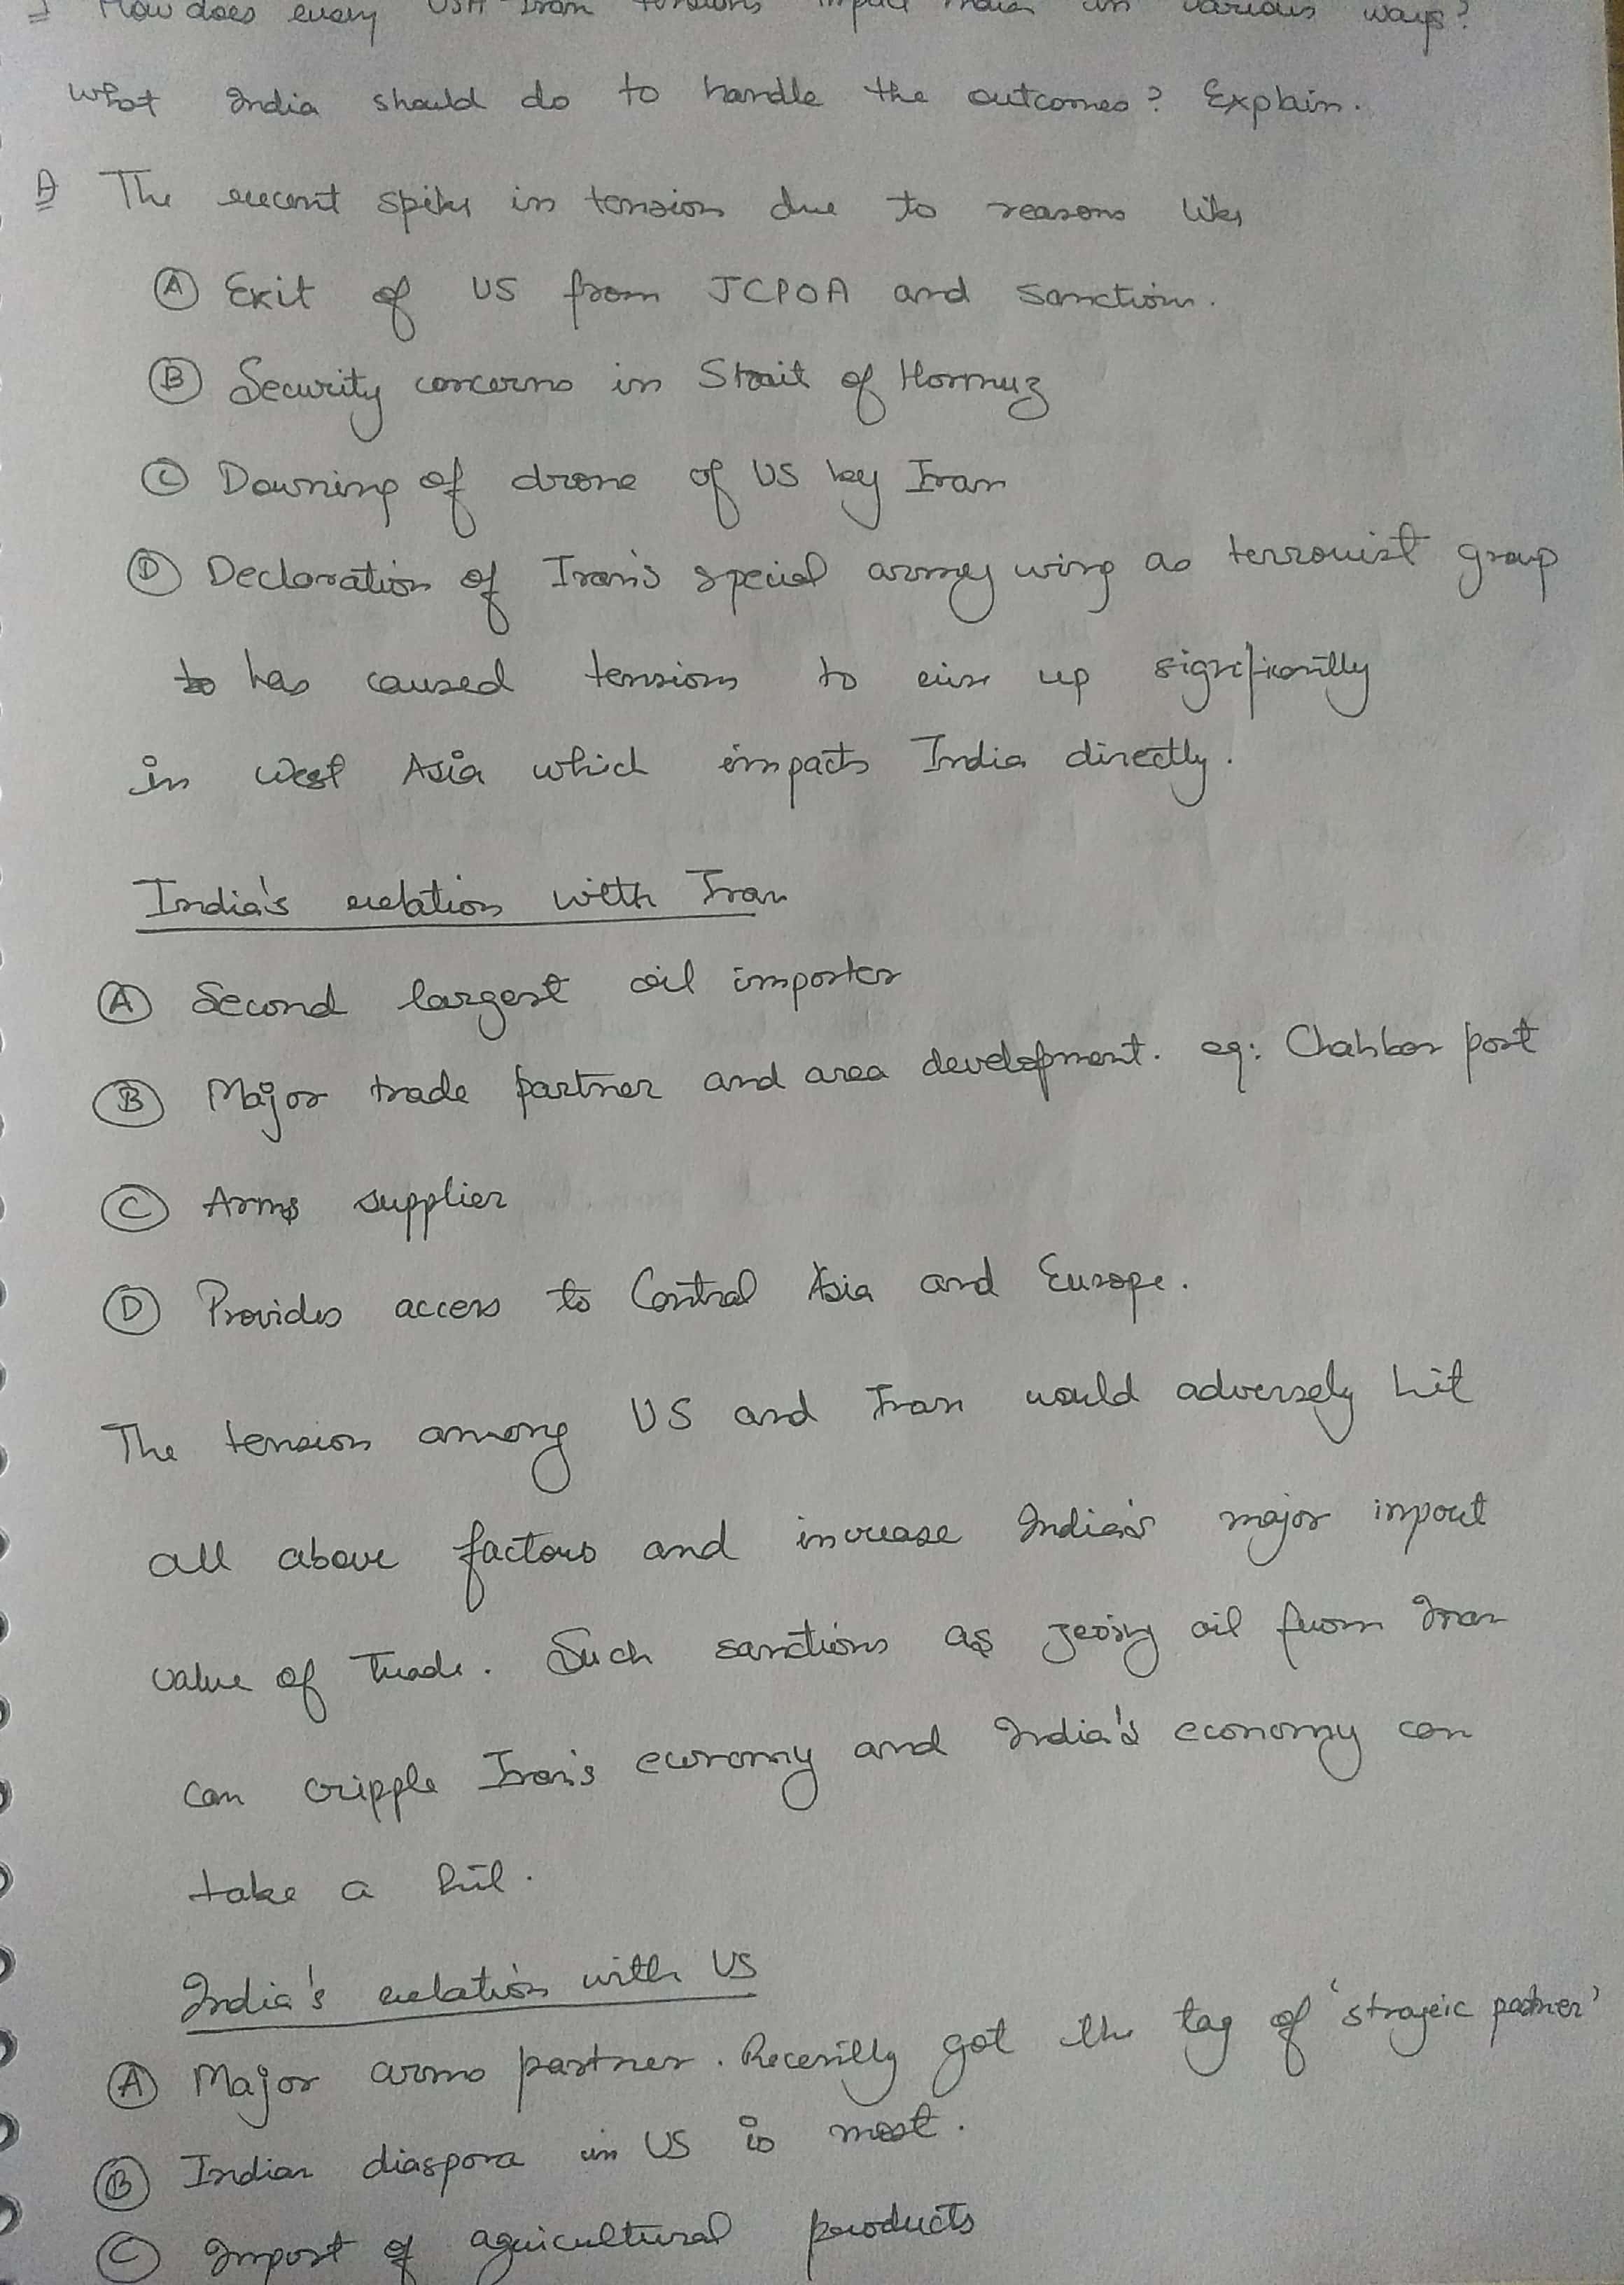 How does every USA Iran tensions impact India in various ways?
What India should do to handle the outcomes? Explain.
A The recent spike in tension due to reasons like
A Exit of US from JCPOA and sanctions.
B Security concerns in Strait of Hormuz
C Downing of drone of US by Iran
D Declaration of Iran's special army wing as terrorist group
to has caused tensions to rise up significantly
in West Asia which impacts India directly.
India's relation with Iran
A Second largest oil importer
B Major trade partner and area development. eg: Chahbar port
C Arms supplier
D Provides access to Central Asia and Europe.
The tension among US and Iran would adversely hit
all above factors and increase India's major import
value of Trade. Such sanctions as oil from Iran
can cripple Iran's economy and India's economy can
take a hit.
India's relation with US
A Major arms partner. Recently got the tag of 'strageic partner'
B Indian diaspora in US is most.
C Import of agricultural products